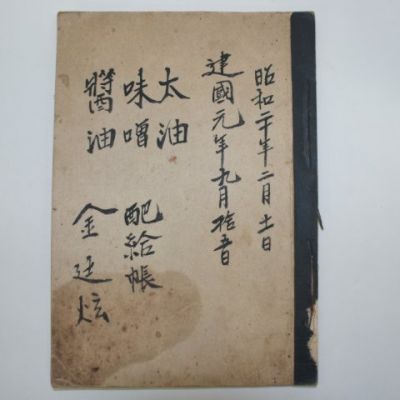 昭和二十年二月十一日
建國元年九月拾五日
太油
味噌 配給帳
醬油
金廷炫